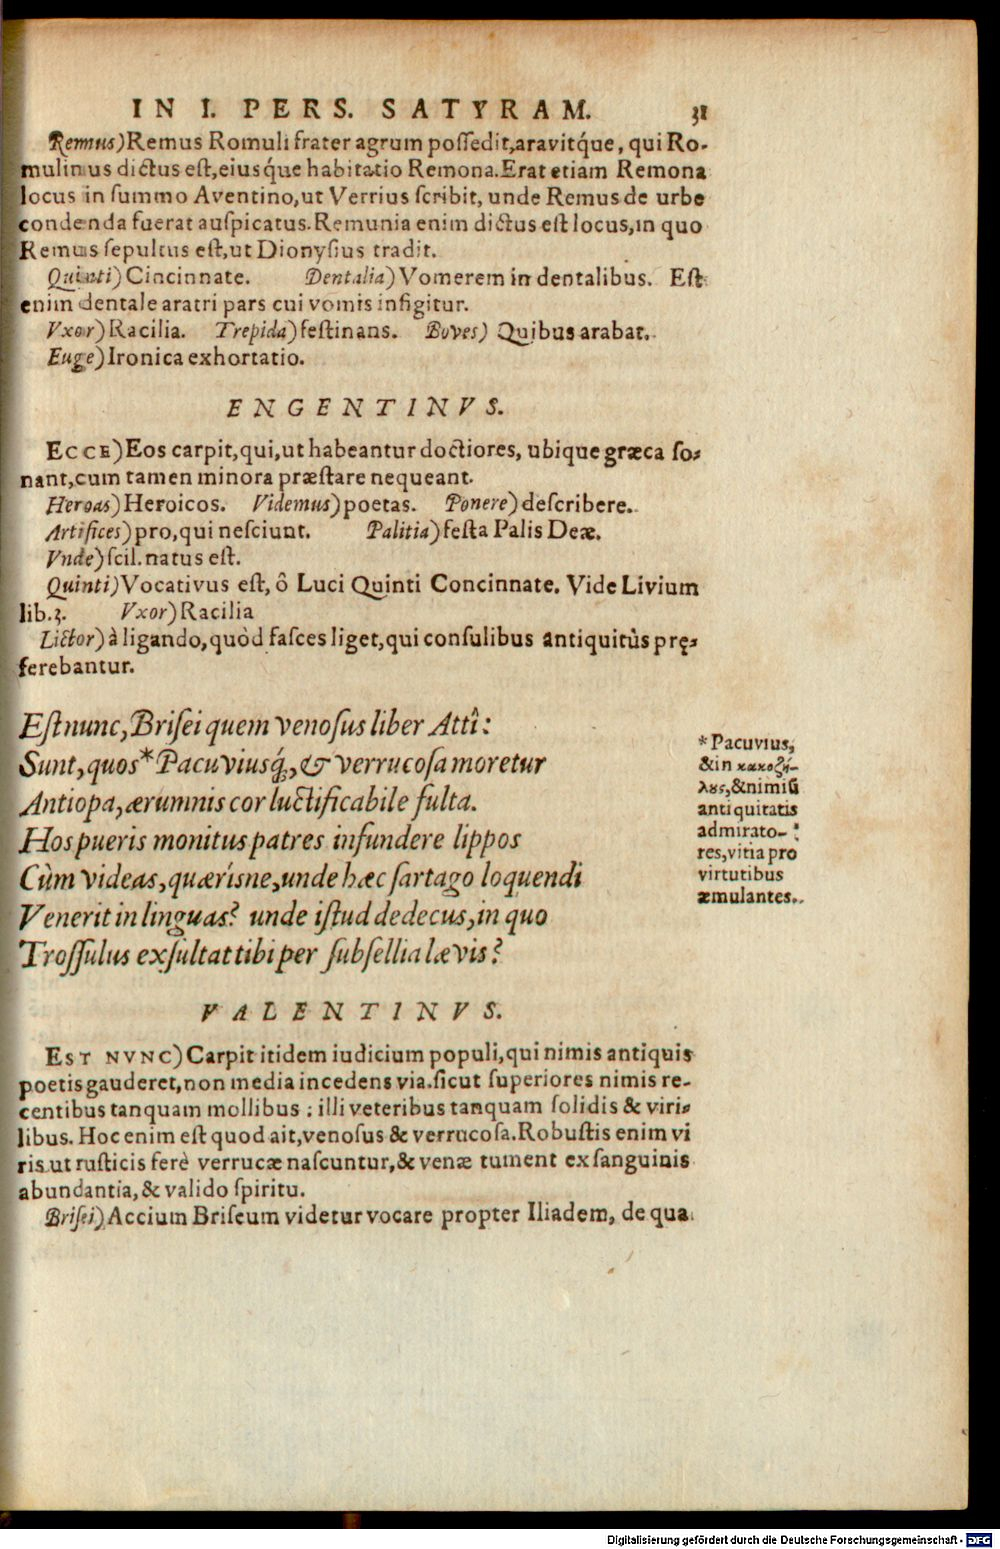 IN I. PERS. SATYRAM. 31
Remus) Remus Romuli frater agrum possedit, aravitq́ue, qui Ro-
mulinus dictus est, eiusq́ue habitatio Remona. Erat etiam Remona
locus in summo Aventino, ut Verrius scribit, unde Remus de urbe
condenda fuerat auspicatus. Remunia enim dictus est locus, in quo
Remus sepultus est, ut Dionysius tradit.
Quinti) Cincinnate. Dentalia) Vomerem in dentalibus. Est
enim dentale aratri pars cui vomis infigitur.
Vxor) Racilia. Trepida) festinans. Boves) Quibus arabat.
Euge) Ironica exhortatio.
ENGENTINVS.
ECCE) Eos carpit, qui, ut habeantur doctiores, ubique græca so-
nant, cum tamen minora præstare nequeant.
Heroas) Heroicos. Videmus) poetas. Ponere) describere.
Artifices) pro, qui nesciunt. Palitia) festa Palis Deæ.
Vnde) scil. natus est.
Quinti) Vocativus est, ô Luci Quinti Concinnate. Vide Livium
lib.3. Vxor) Racilia
Lictor) à ligando, quòd fasces liget, qui consulibus antiquitùs prę-
ferebantur.
Est nunc, Brisei quem venosus liber Attî:
Sunt, quos* Pacuviusq́;, & verrucosa moretur
Antiopa, ærumnis cor luctificabile fulta.
Hos pueris monitus patres infundere lippos
Cùm videas, quærísne, unde hæc sartago loquendi
Venerit in linguas? unde istud dedecus, in quo
Trossulus exsultat tibi per subsellia lævis?
* Pacuvius,
& in κακοζή-
λους, & nimiũ
antiquitatis
admirato-
res, vitia pro
virtutibus
æmulantes.
VALENTINVS.
EST NVNC) Carpit itidem iudicium populi, qui nimis antiquis
poetis gauderet, non media incedens via. sicut superiores nimis re-
centibus tanquam mollibus : illi veteribus tanquam solidis & viri-
libus. Hoc enim est quod ait, venosus & verrucosa. Robustis enim vi
ris ut rusticis ferè verrucæ nascuntur, & venæ tument ex sanguinis
abundantia, & valido spiritu.
Brisei) Accium Briseum videtur vocare propter Iliadem, de qua
Digitalisierung gefördert durch die Deutsche Forschungsgemeinschaft - DFG